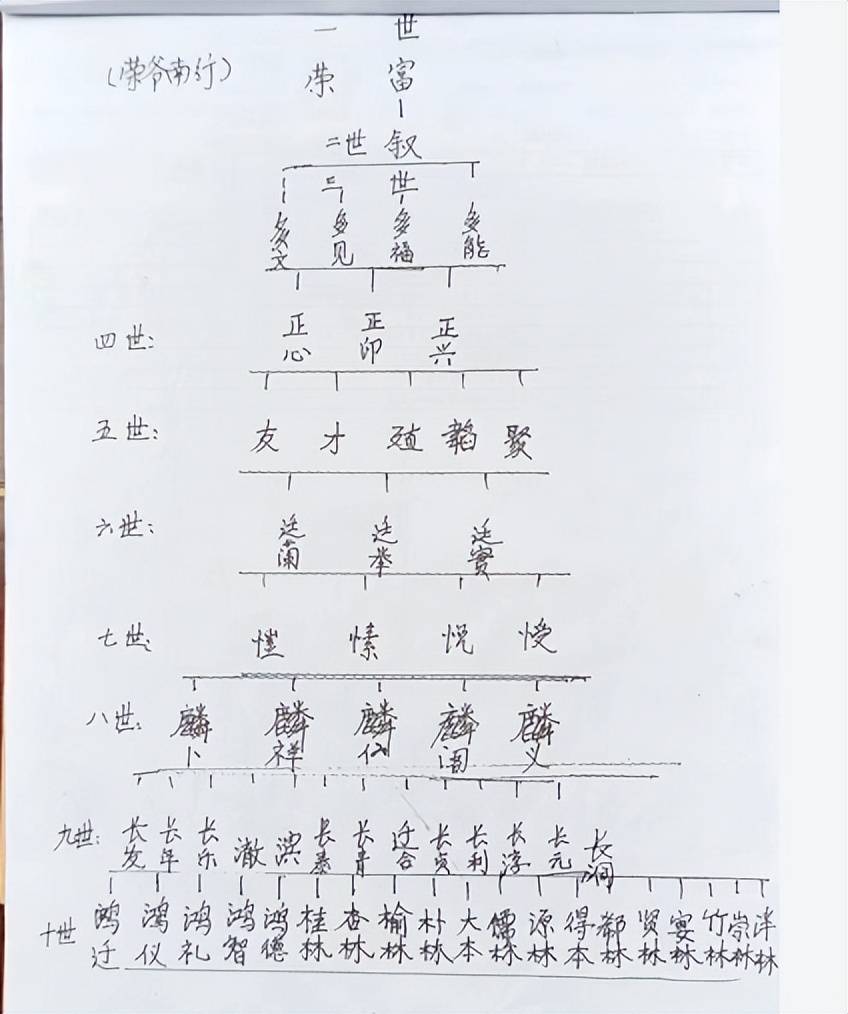 一 世
(荣爷南行) 荣 富
二世 叙
三 世
多文 多见 多福 多能
四世: 正心 正印 正兴
五世: 友 才 殖 韜 聚
六世: 廷蘭 廷举 廷實
七世: 愷 愫 悦
八世: 麟卜 麟祥 麟仪 麟阁 麟义
九世: 长发 长年 长乐 澈 滨 长泰 长青 迁合 长贞 长利 长淳 长元 长润
十世 鸿迁 鸿仪 鸿礼 鸿智 鸿德 桂林 杏林 榆林 朴林 大本 儒林 源林 得本 郁林 贤林 宴林 竹林 崇林 泮林